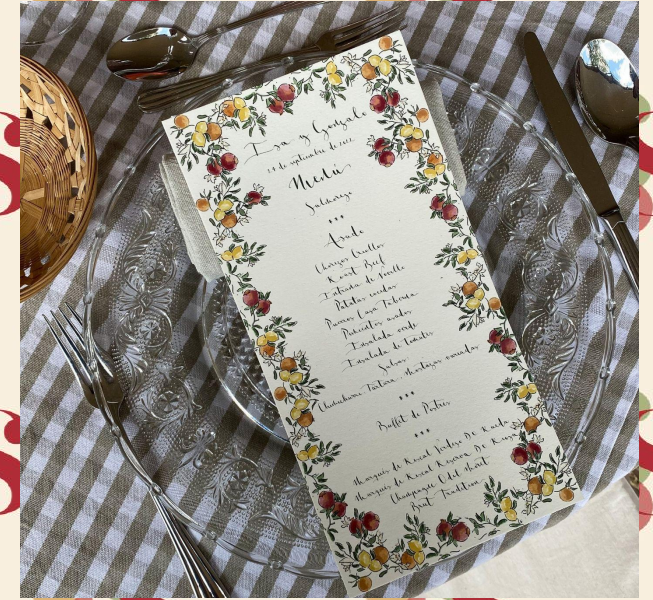 Isa y Gonzalo
de septiembre de
Menú
Salmorejo
Asado
Chorizo Criollo
Roast Beef
Entraña de Novillo
Patatas asadas
Puerros Casa Taberna
Pimientos asados
Ensalada verde
Ensalada de tomates
Salsas
Chimichurri, Tártara, Mostazas variadas
Buffet de Postres
Marqués de Riscal Verdejo DO Rueda
Marqués de Riscal Reserva DO Rioja
Champagne
Brut Tradition